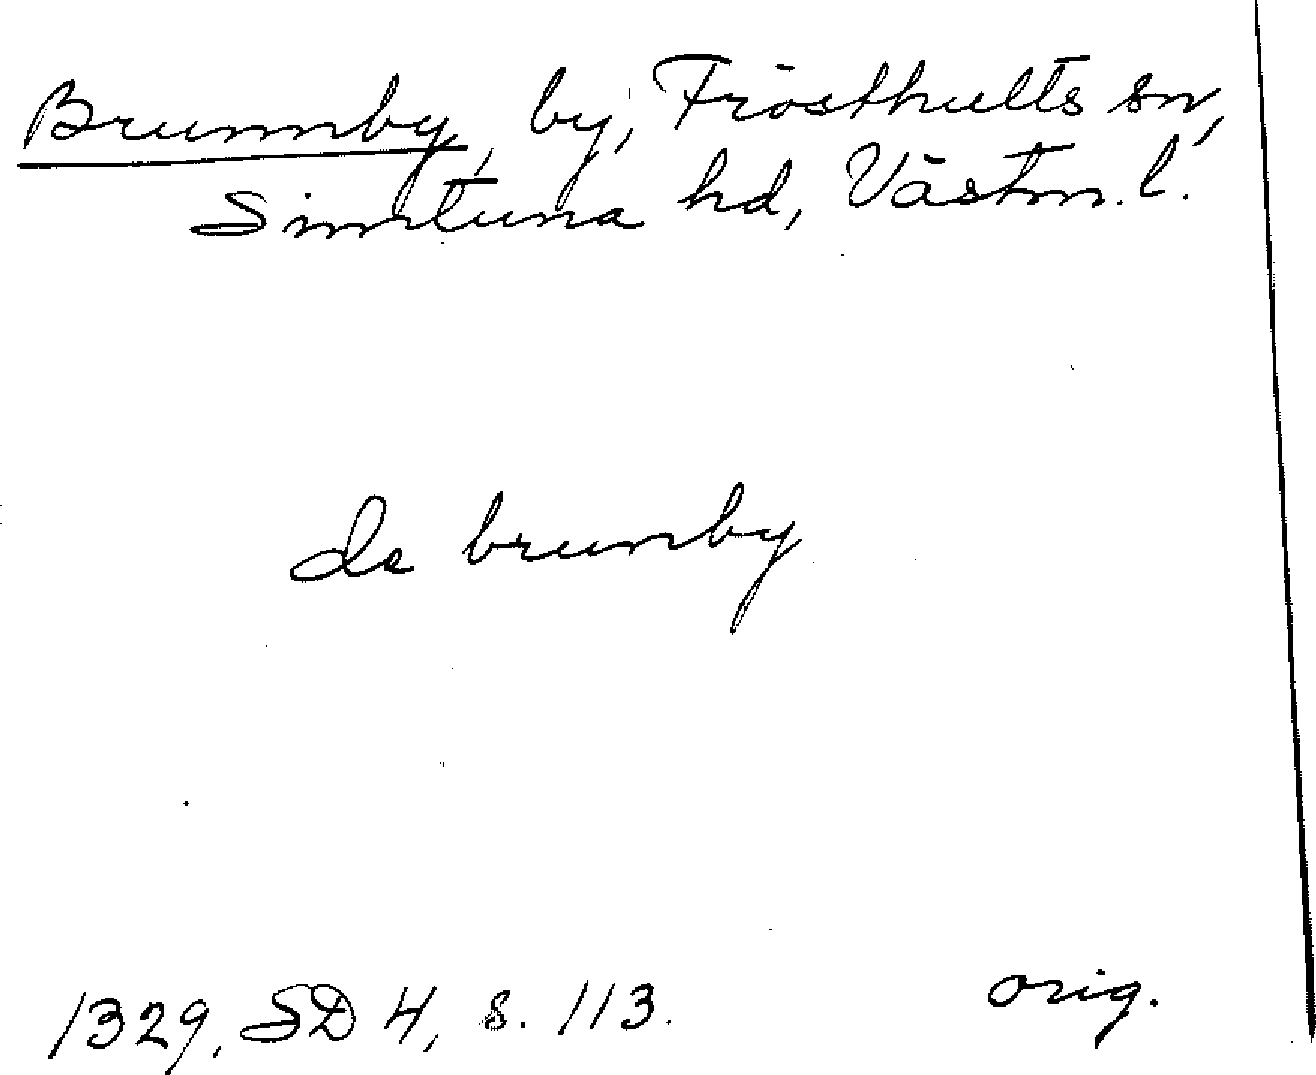 Brunnby, by, Frösthults sn,
Simtuna hd, Västm. l.
de brunby
1329, SD 4, s. 113. orig.